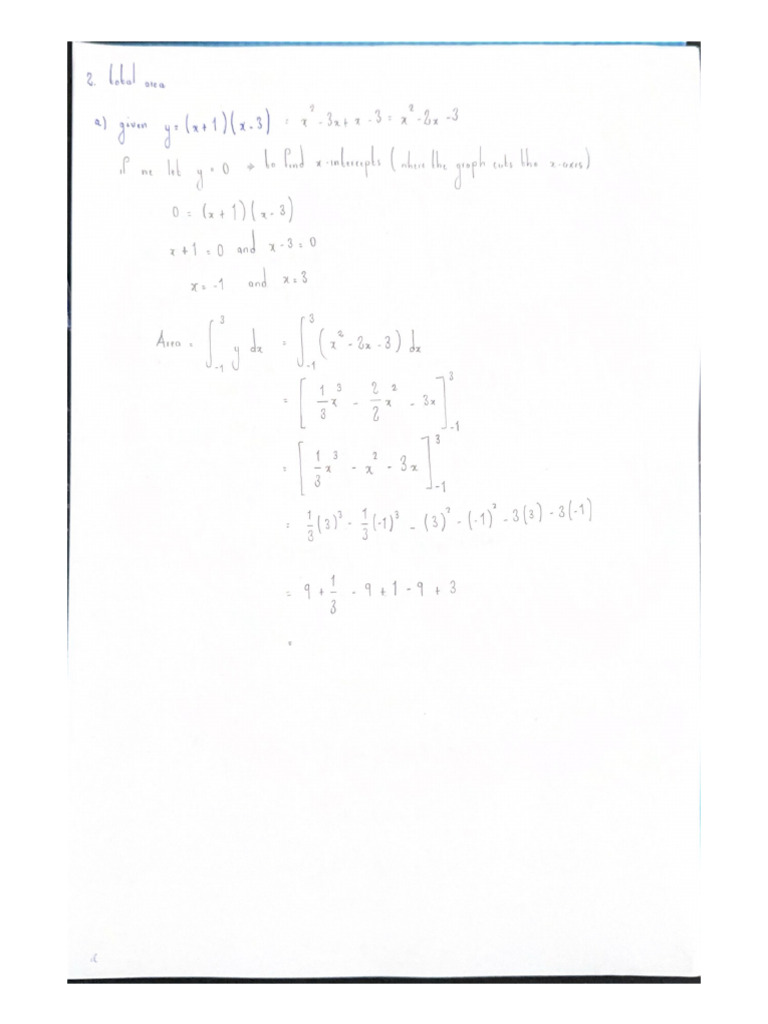 2. total area
a) given y = (x+1)(x-3) = x² - 3x + x - 3 = x² - 2x - 3
if we let y = 0 → to find x-intercepts (where the graph cuts the x-axis)
0 = (x+1)(x-3)
x+1 = 0 and x-3 = 0
x = -1 and x = 3
Area = ∫₋₁³ y dx = ∫₋₁³ (x² - 2x - 3) dx
= [1/3 x³ - 2/2 x² - 3x]₋₁³
= [1/3 x³ - x² - 3x]₋₁³
= 1/3 (3)³ - 1/3 (-1)³ - (3)² - (-1)² - 3(3) - 3(-1)
= 9 + 1/3 - 9 + 1 - 9 + 3
=